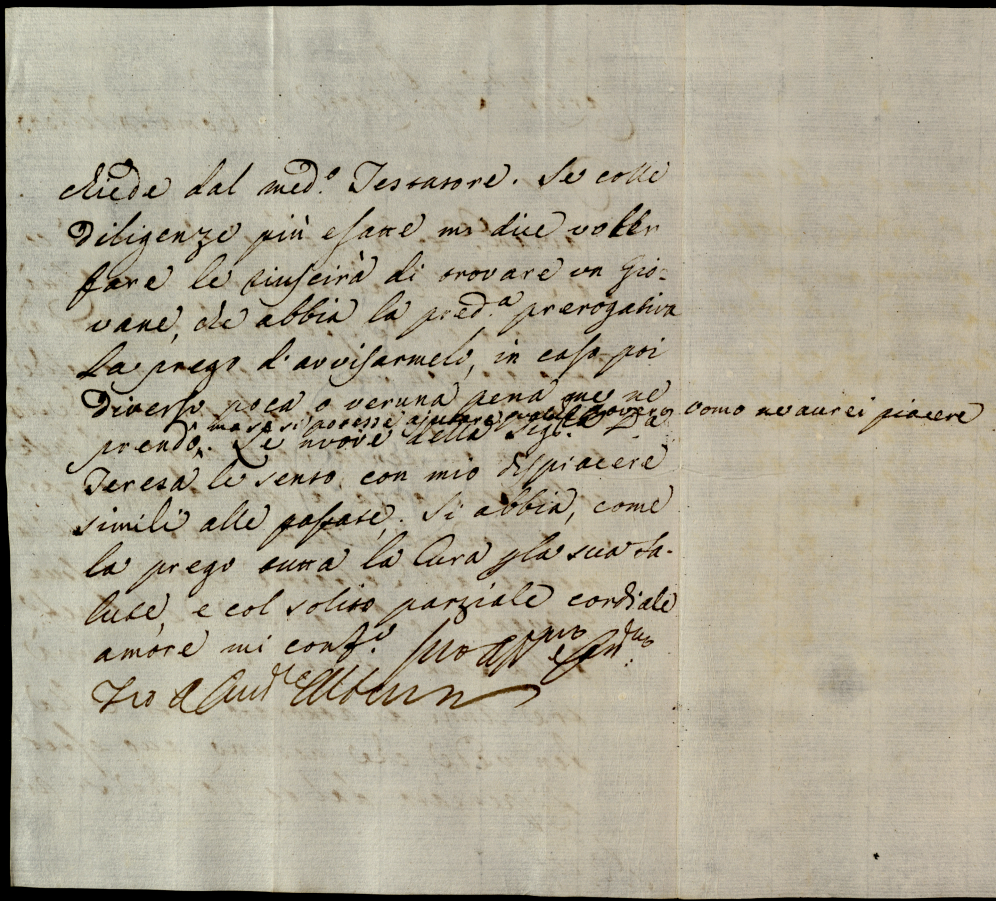 chiede dal med.º Testatore. Se colle
diligenze più esatte me dice voler
fare le riuscirà di trovare un Gio-
vane, che abbia la pred.ª prerogativa
La prego d'avvisarmelo, in caso poi
diverso poca o veruna pena me ne
ma se si potesse ajutare quel povero uomo ne aurei piacere
prendo. Le nuove della Sig.ª Da
Teresa le sento con mio dispiacere
simili alle passate. Si abbia, come
la prego tutta la Cura p la sua sa-
lute, e col solito parziale cordiale
amore mi conf.º
Suo
Zio